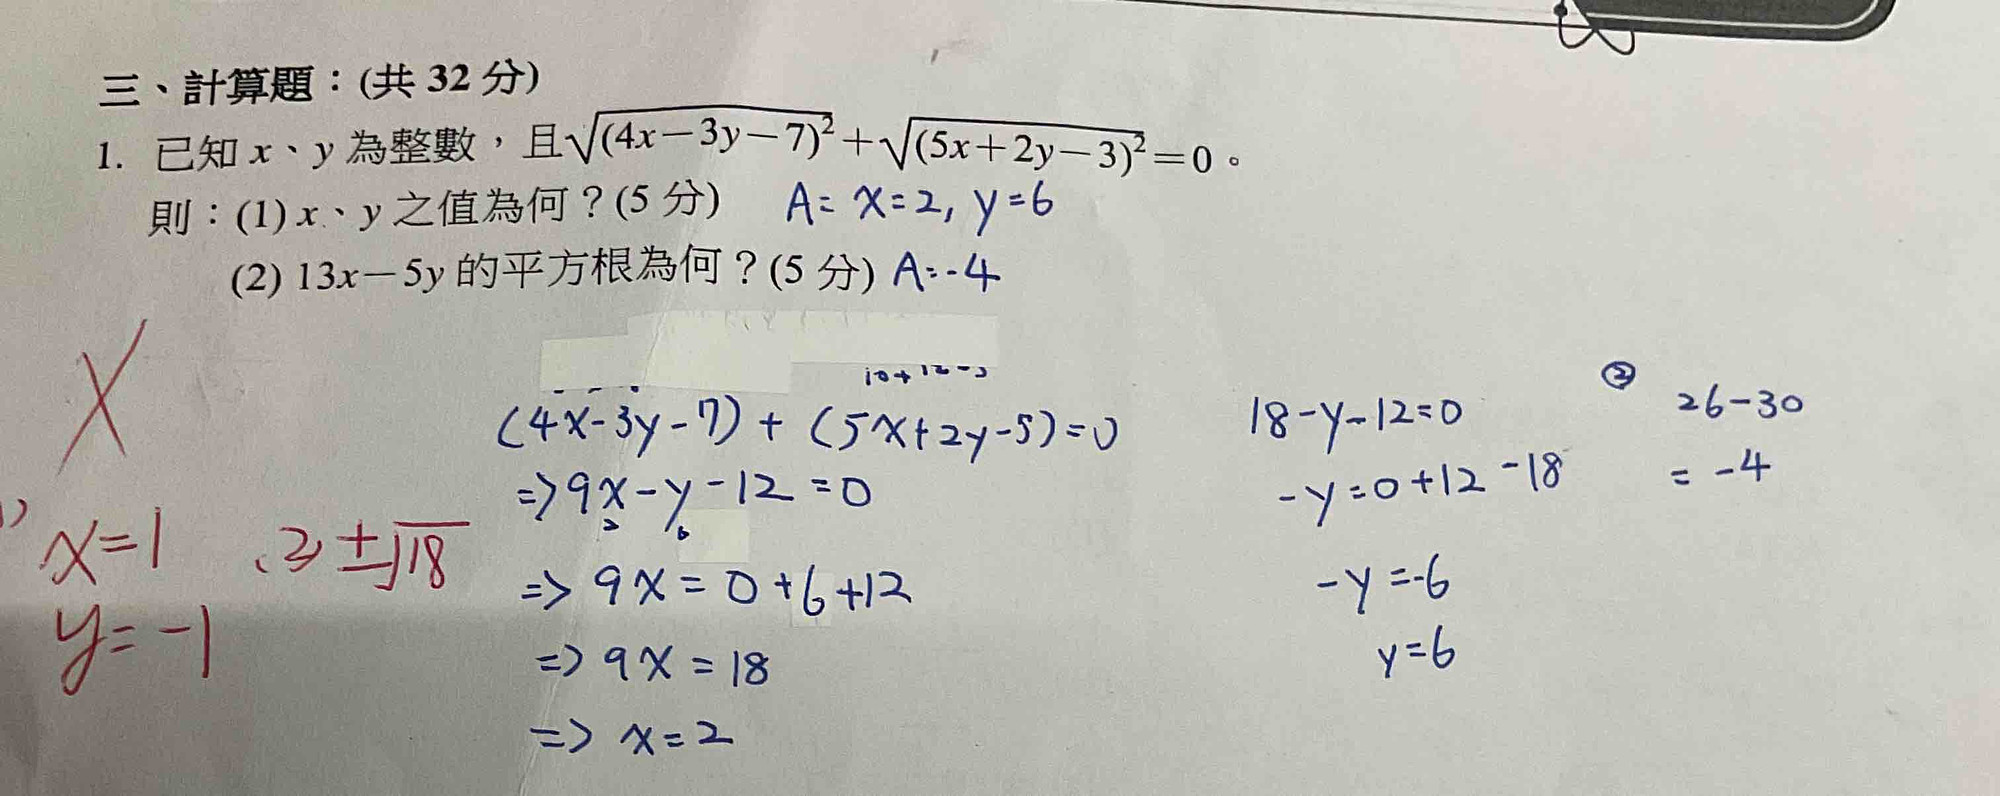 三、計算題：(共 32 分)
1. 已知 x、y 為整數，且√(4x－3y－7)²＋√(5x＋2y－3)²＝0。
則：(1) x、y 之值為何？(5 分) A= x=2, y=6
(2) 13x－5y 的平方根為何？(5 分) A:-4
X
(4x-3y-7) + (5x+2y-5)=0
=>9x-y-12=0
=> 9x=0+6+12
=> 9x=18
=> x=2
18-y-12=0
-y=0+12-18
-y=-6
y=6
② 26-30
= -4
1) x=1
y=-1
(2) ±√18